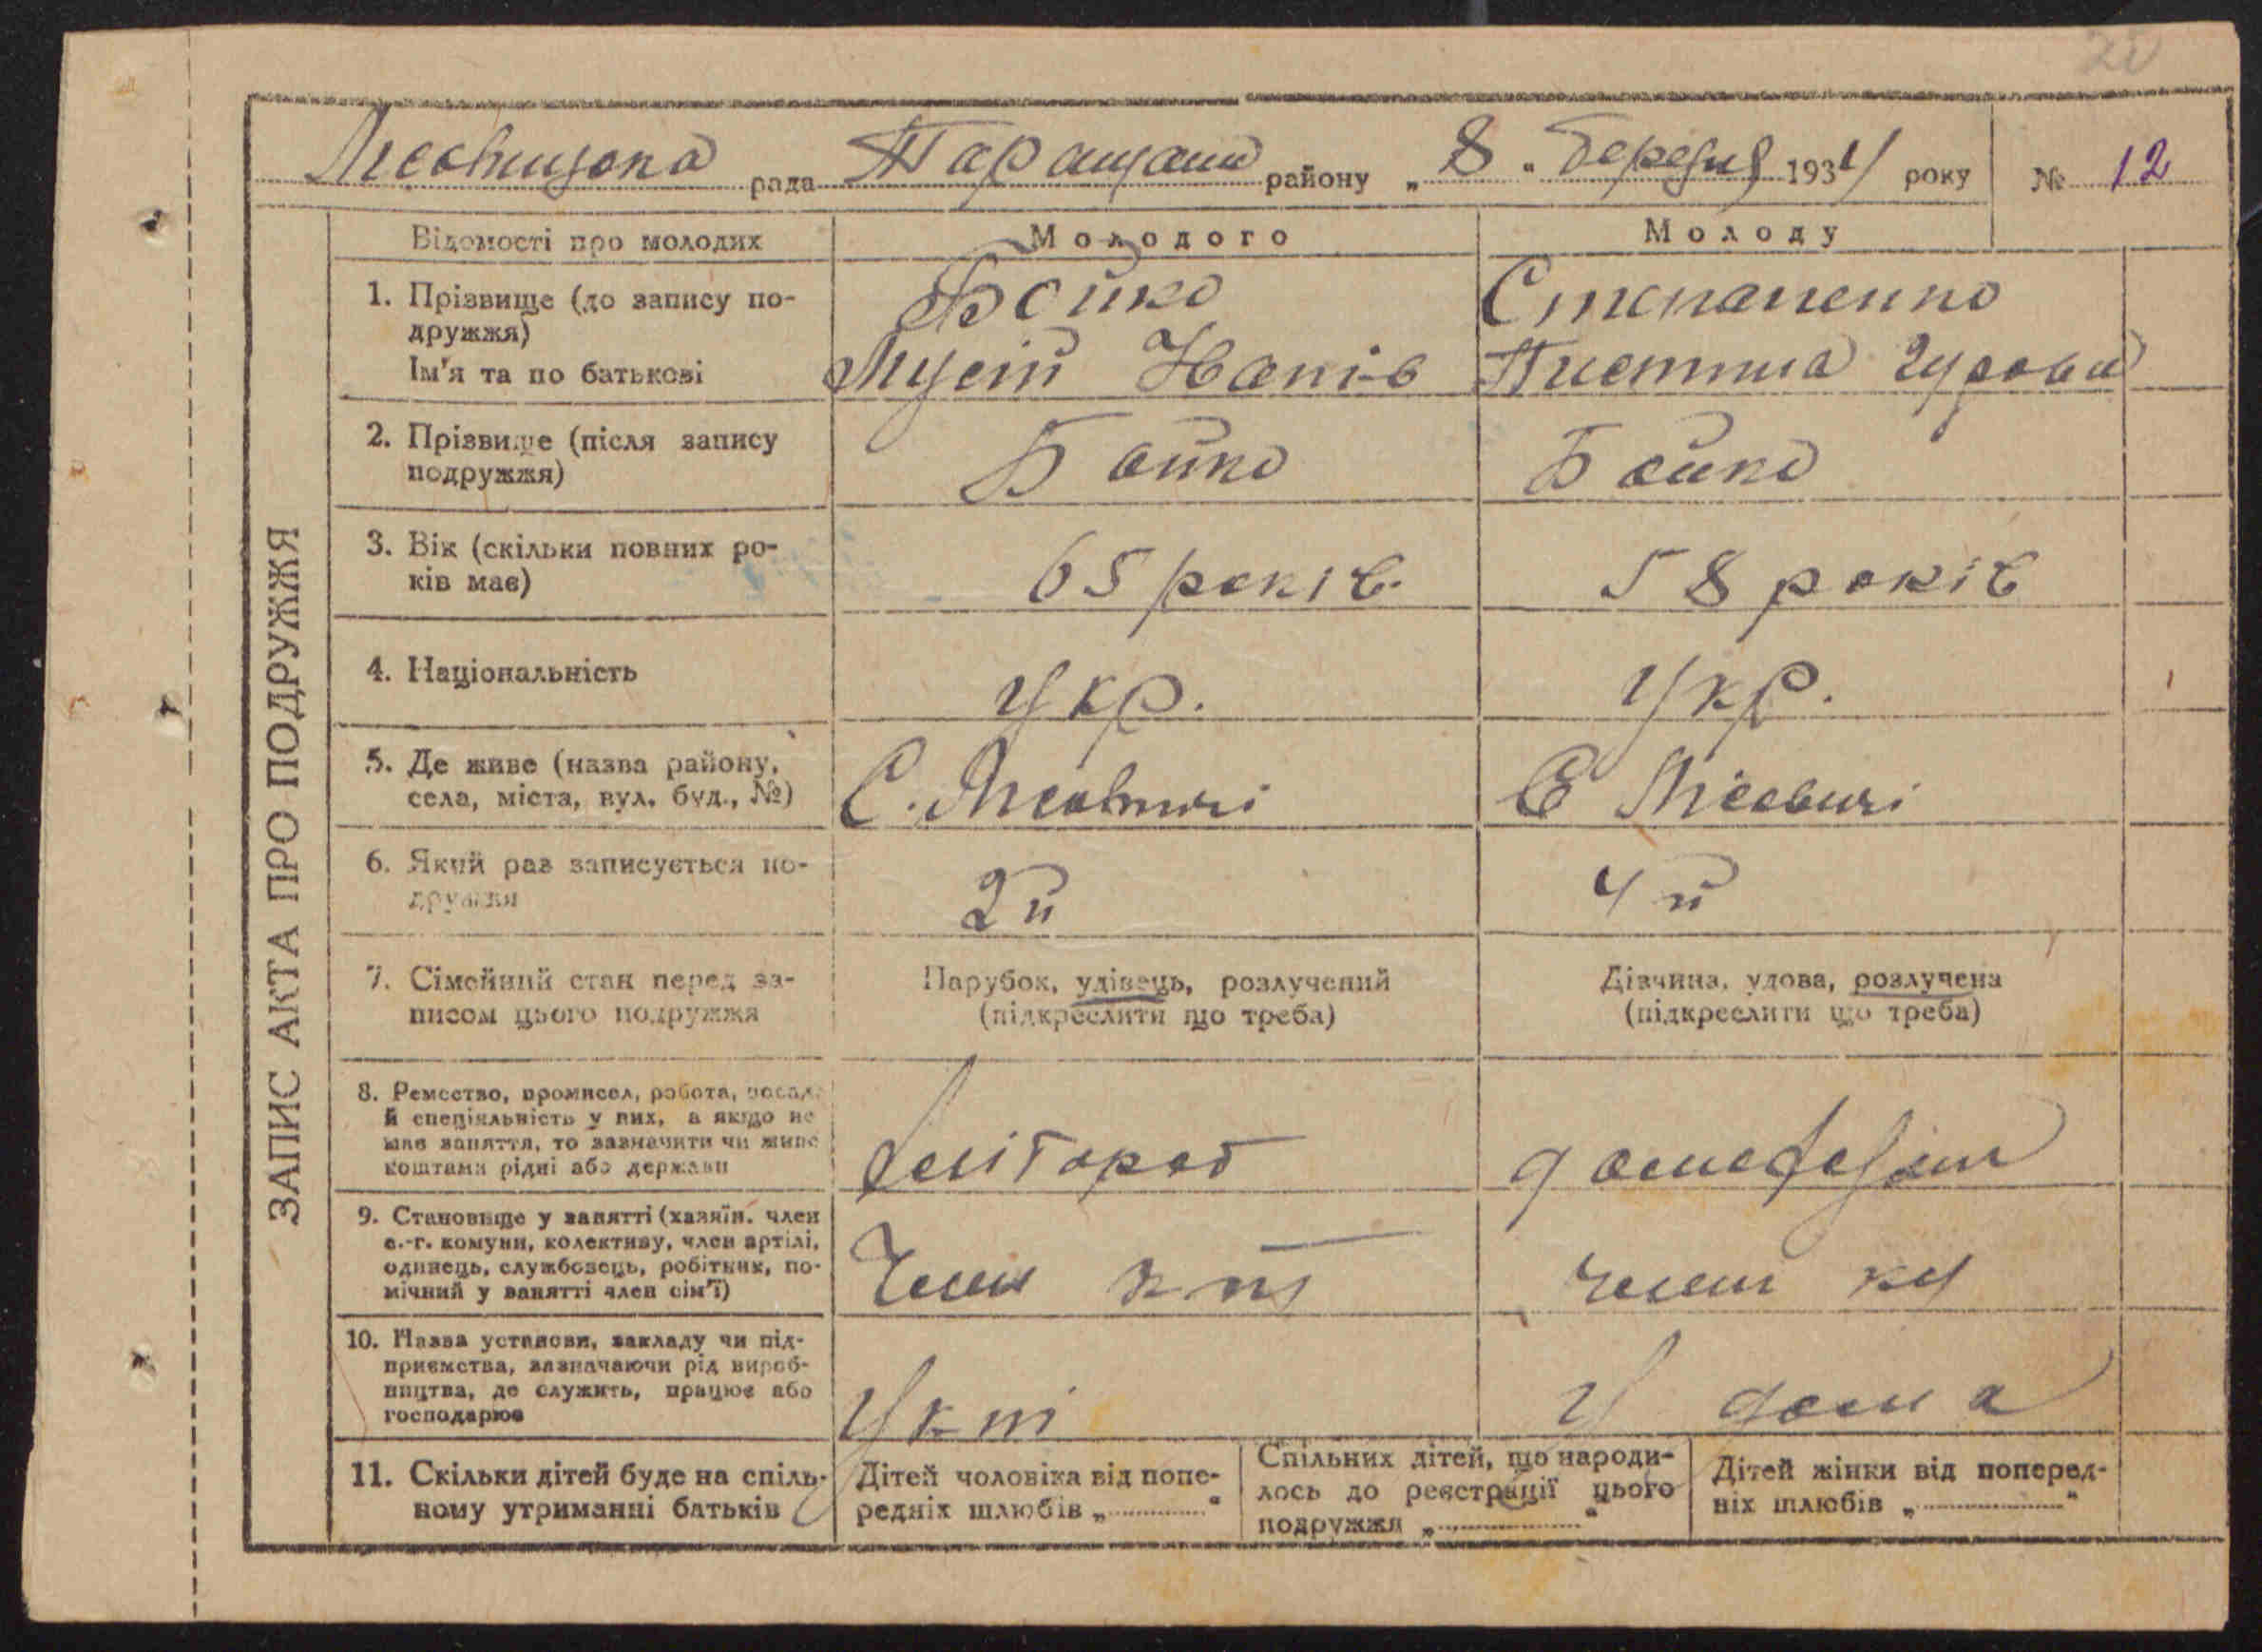 20
рада Таращан району „ 8 " березня 1934 року № 12
ЗАПИС АКТА ПРО ПОДРУЖЖЯ
Відомості про молодих
Молодого
Молоду
1. Прізвище (до запису по-
дружжя)
Ім'я та по батькові
Бойко
Мусій
Степаненко
2. Прізвище (після запису
подружжя)
Бойко
Бойко
3. Вік (скільки повних ро-
ків має)
65 років
58 років
4. Національність
Укр.
Укр.
5. Де живе (назва району,
села, міста, вул. буд., №)
С. Лісовичі
С Лісовичі
6. Який раз записується по-
дружжя
2й
4й
7. Сімейний стан перед за-
писом цього подружжя
Парубок, удівець, розлучений
(підкреслити що треба)
Дівчина, удова, розлучена
(підкреслити що треба)
8. Ремество, промисел, робота, посада
й спеціяльність у них, а якщо не
має заняття, то зазначити чи живе
коштами рідні або держави
9. Становище у занятті (хазяїн, член
с.-г. комуни, колективу, член артілі,
одинець, службовець, робітник, по-
мічний у занятті член сім'ї)
Член
член
10. Назва установи, закладу чи під-
приємства, зазначаючи рід вироб-
ництва, де служить, працює або
господарює
У дома
11. Скільки дітей буде на спіль-
ному утриманні батьків
Дітей чоловіка від попе-
редніх шлюбів „ "
Спільних дітей, що народи-
лось до реєстрації цього
подружжя „ "
Дітей жінки від поперед-
ніх шлюбів „ "